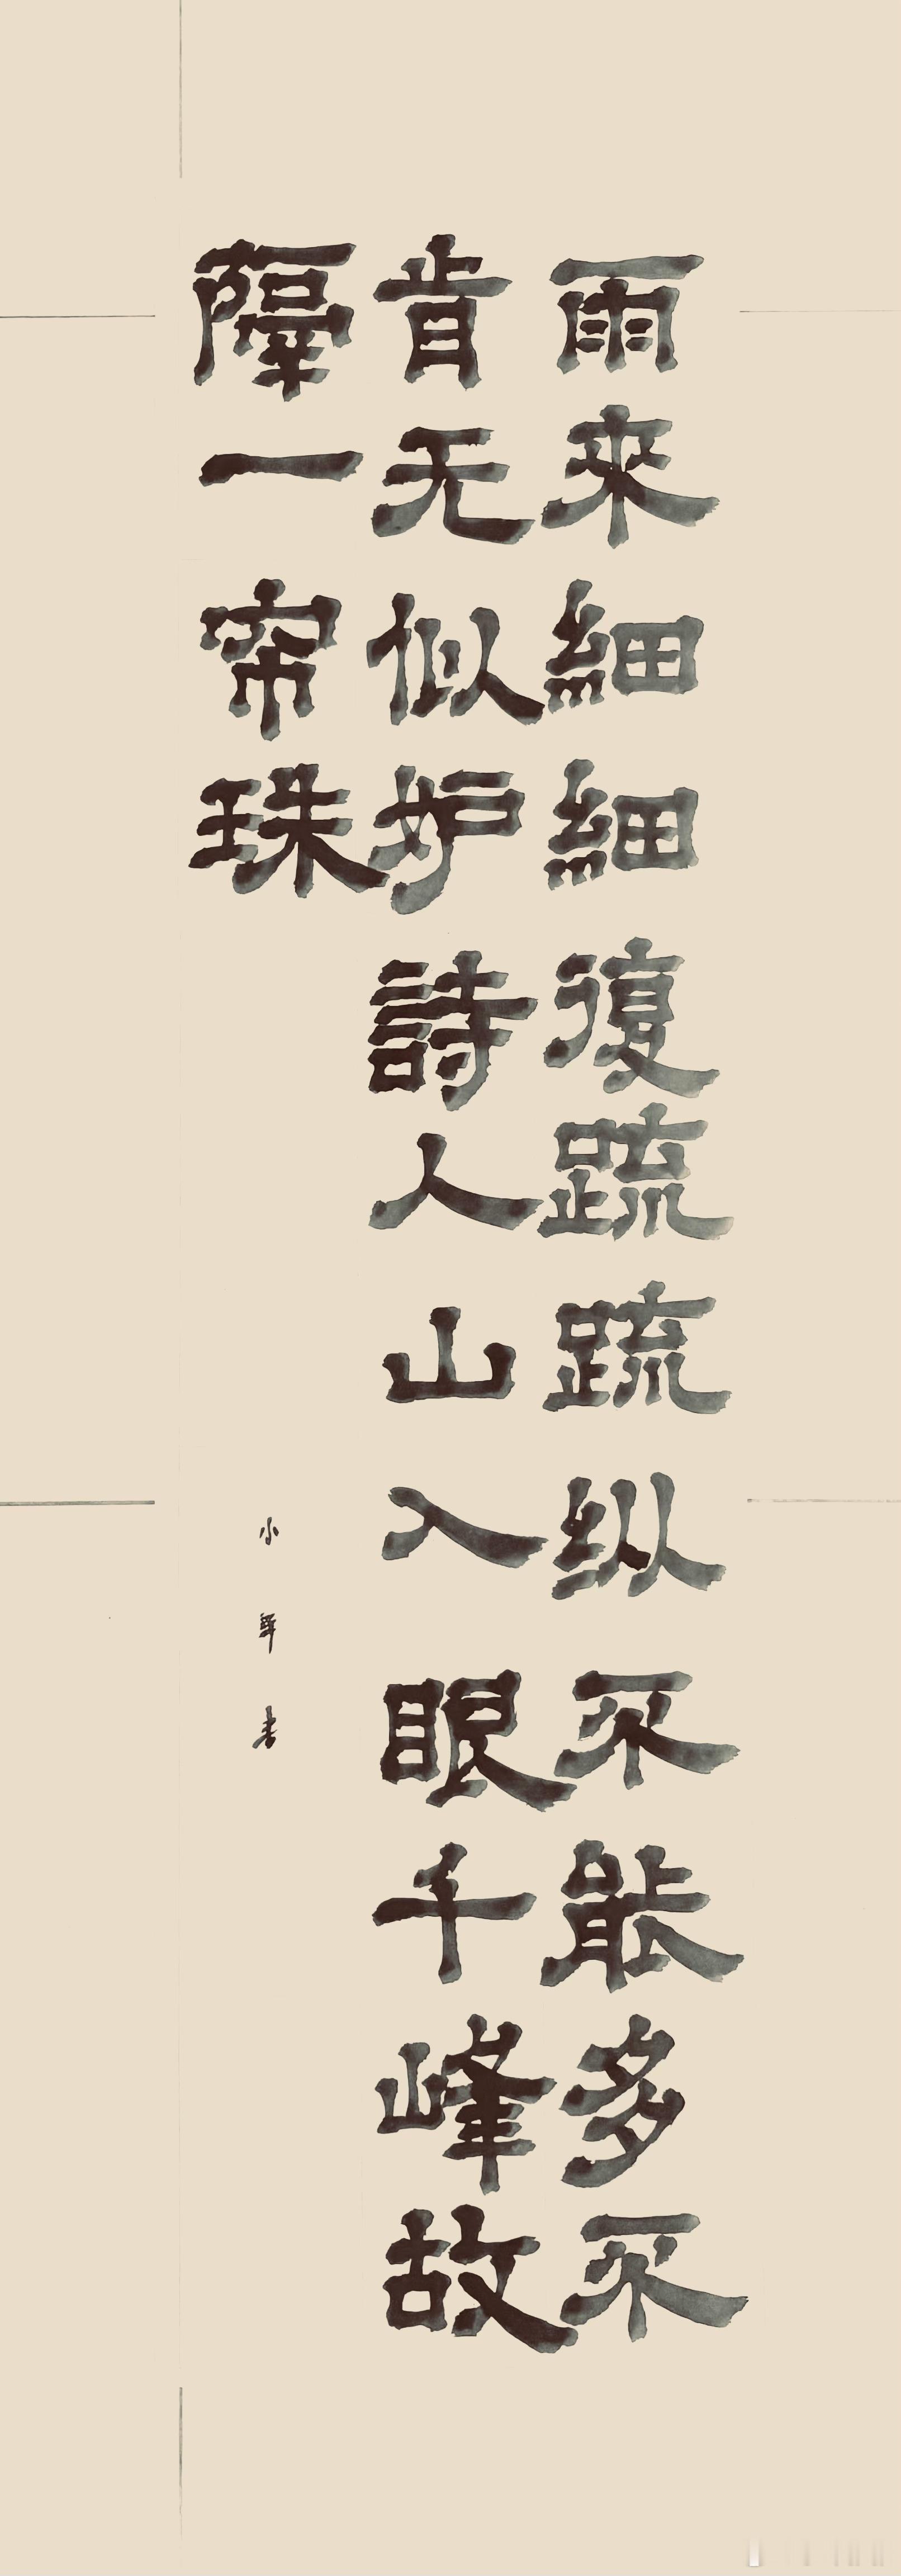 雨來細細復疏疏纵不能多不
肯无似妒詩人山入眼千峰故
隔一帘珠
小軍书